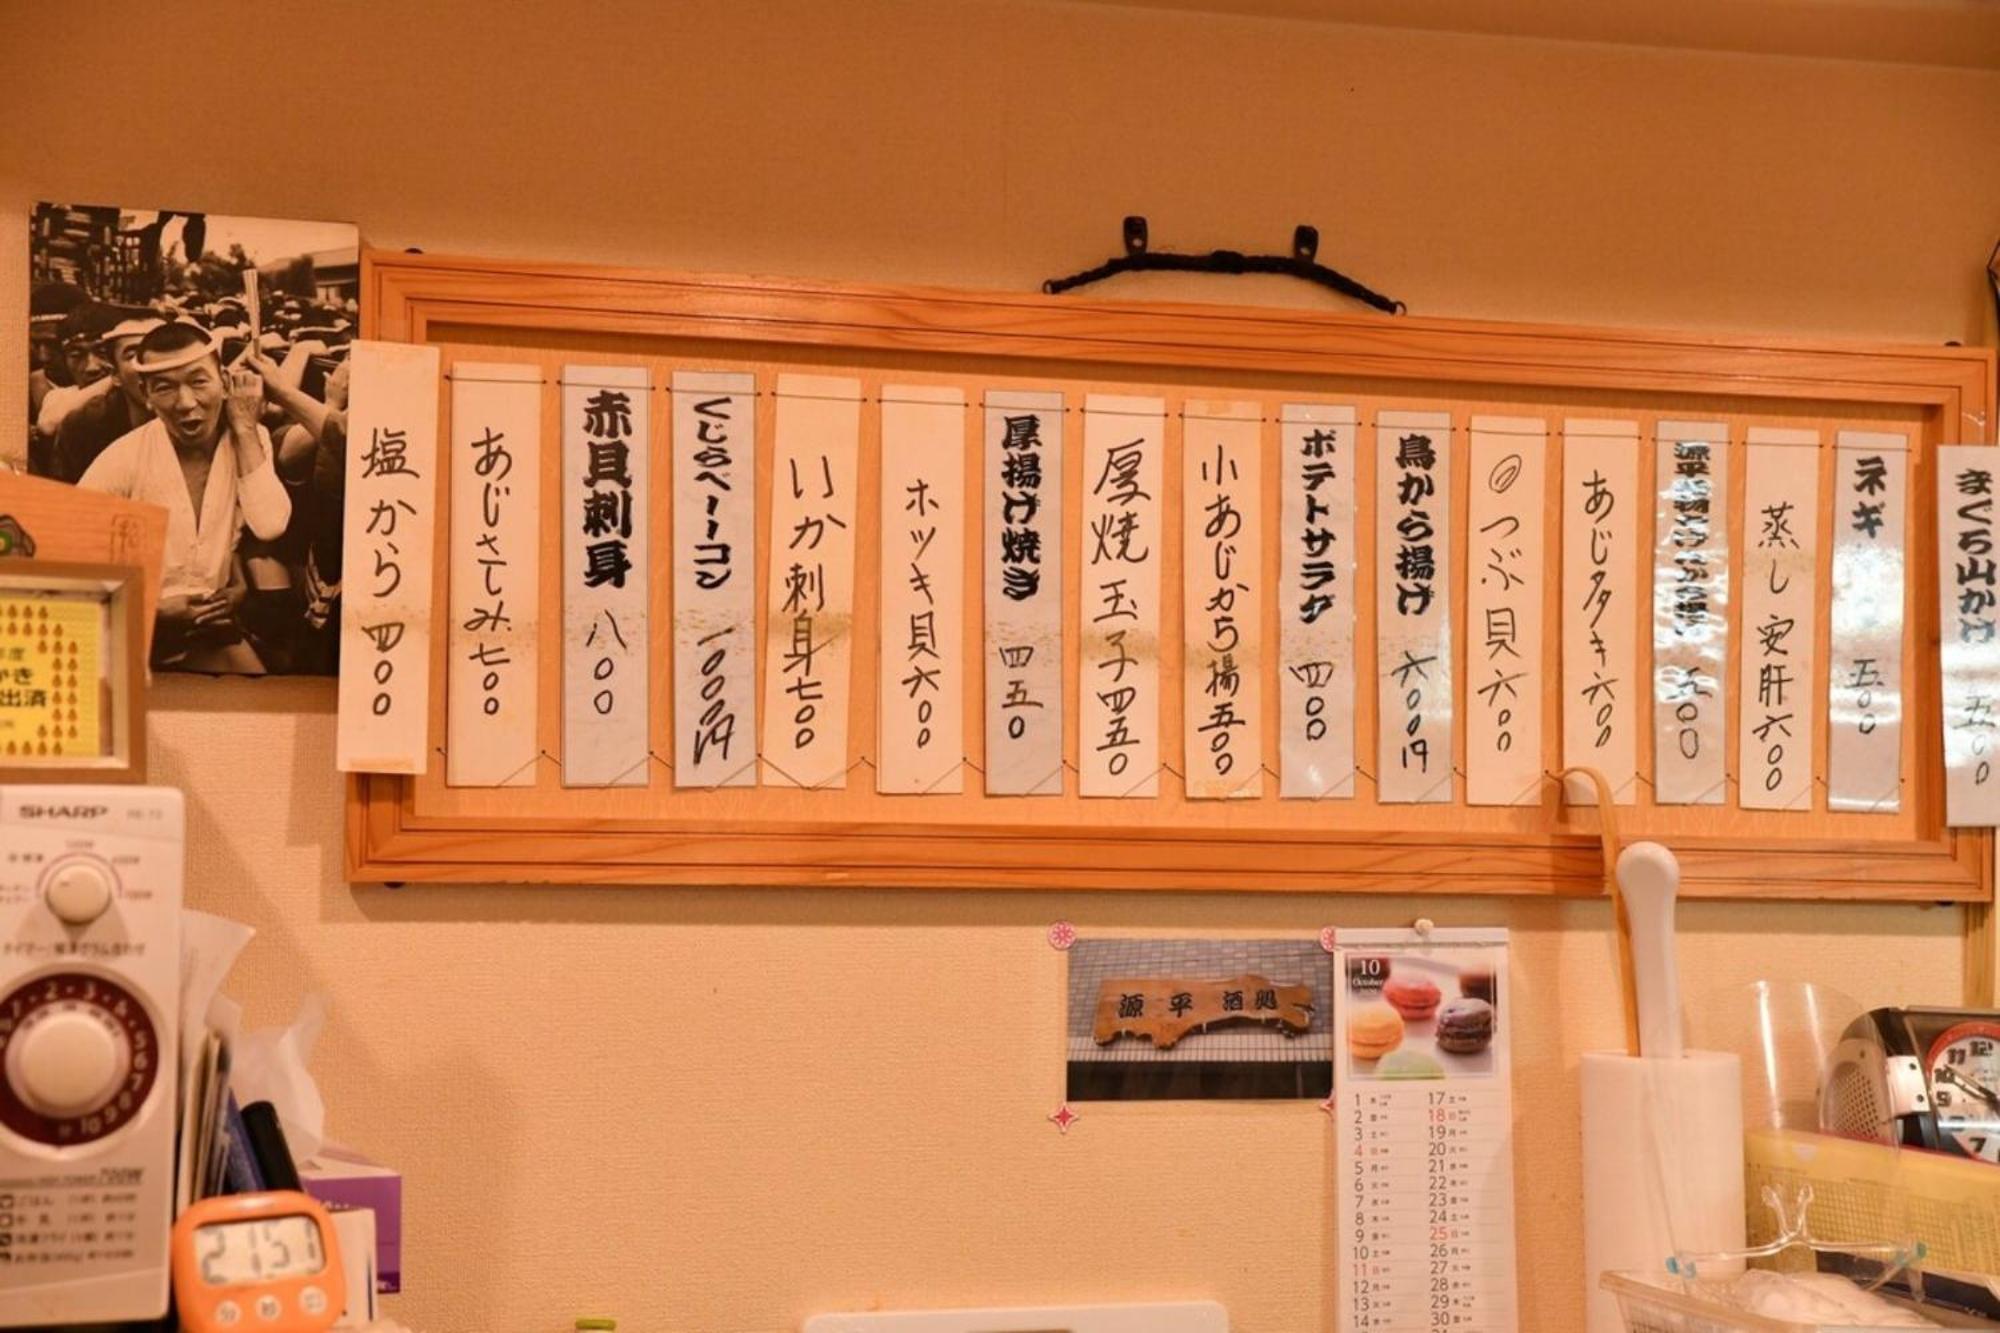 まぐろ山かけ 五〇〇
ネギ 五〇〇
蒸し安肝六〇〇
あじタタキ六〇〇
◎つぶ貝六〇〇
鳥から揚げ 六〇〇円
ポテトサラダ 四〇〇
小あじから揚五〇〇
厚焼玉子四五〇
厚揚げ焼き 四五〇
ホッキ貝六〇〇
いか刺身七〇〇
くじらベーコン 一〇〇〇円
赤貝刺身 八〇〇
あじさしみ七〇〇
塩から 四〇〇
出済
SHARP
700W
21:51
源平酒処
10
October
1 木
2 金
3 土
4 日
5 月
6 火
7 水
8 木
9 金
10 土
11 日
12 月
13 火
14 水
17 土
18 日
19 月
20 火
21 水
22 木
23 金
24 土
25 日
26 月
27 火
28 水
29 木
30 金